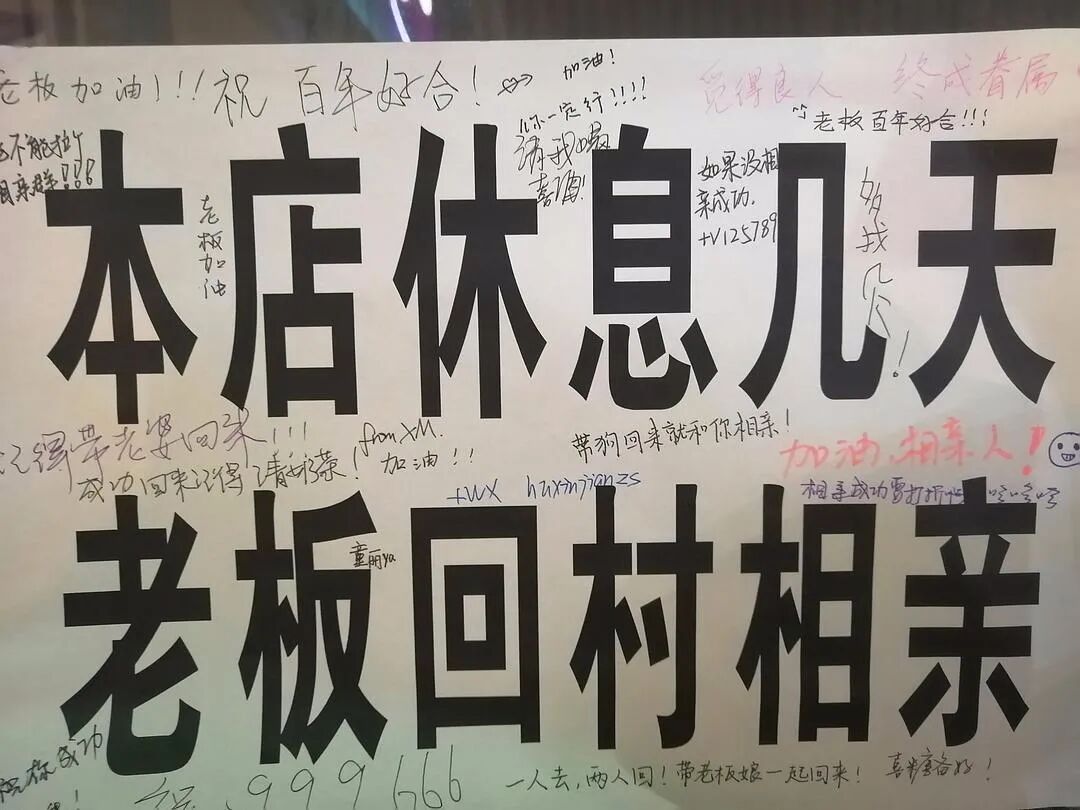 老板加油!!!
祝 百年好合!
加油!
你一定行!!!!
请我喝
喜酒!
觅得良人 终成眷属
老板百年好合!!!
相亲群!!!
本店休息几天
老板加油
如果没相
亲成功.
+V125789
多找几个!
记得带老婆回来!!!
成功回来记得请好菜!
from XM.
加油!!
带狗回来就和你相亲!
加油,相亲人!
+WX huxinjianzs
相亲成功要打折
老板回村相亲
童丽ya
祝你成功
999666
一人去,两人回!带老板娘一起回来!
喜糖备好!